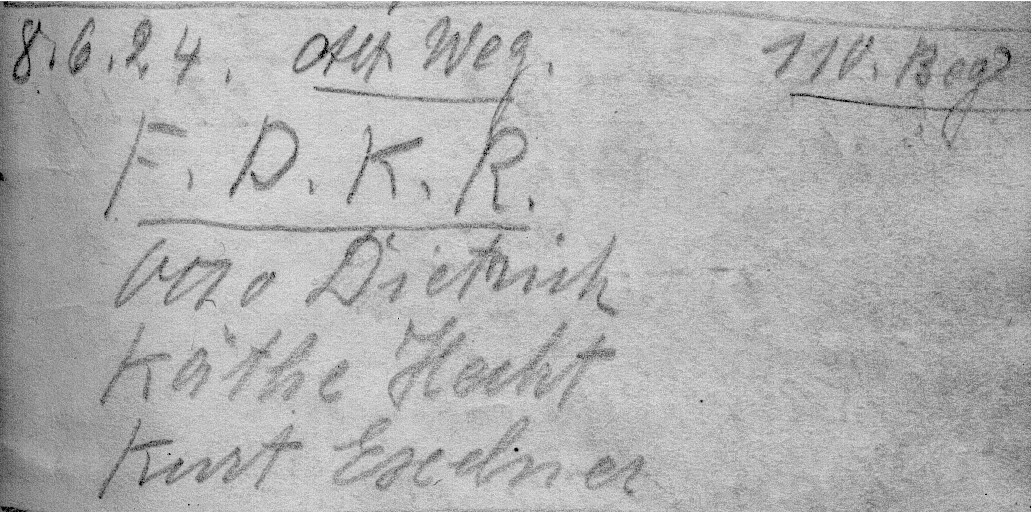 8.6.24. Alt. Weg. 110. Beg
F. D. K. R.
Otto Dietrich
Käthe Hecht
Kurt